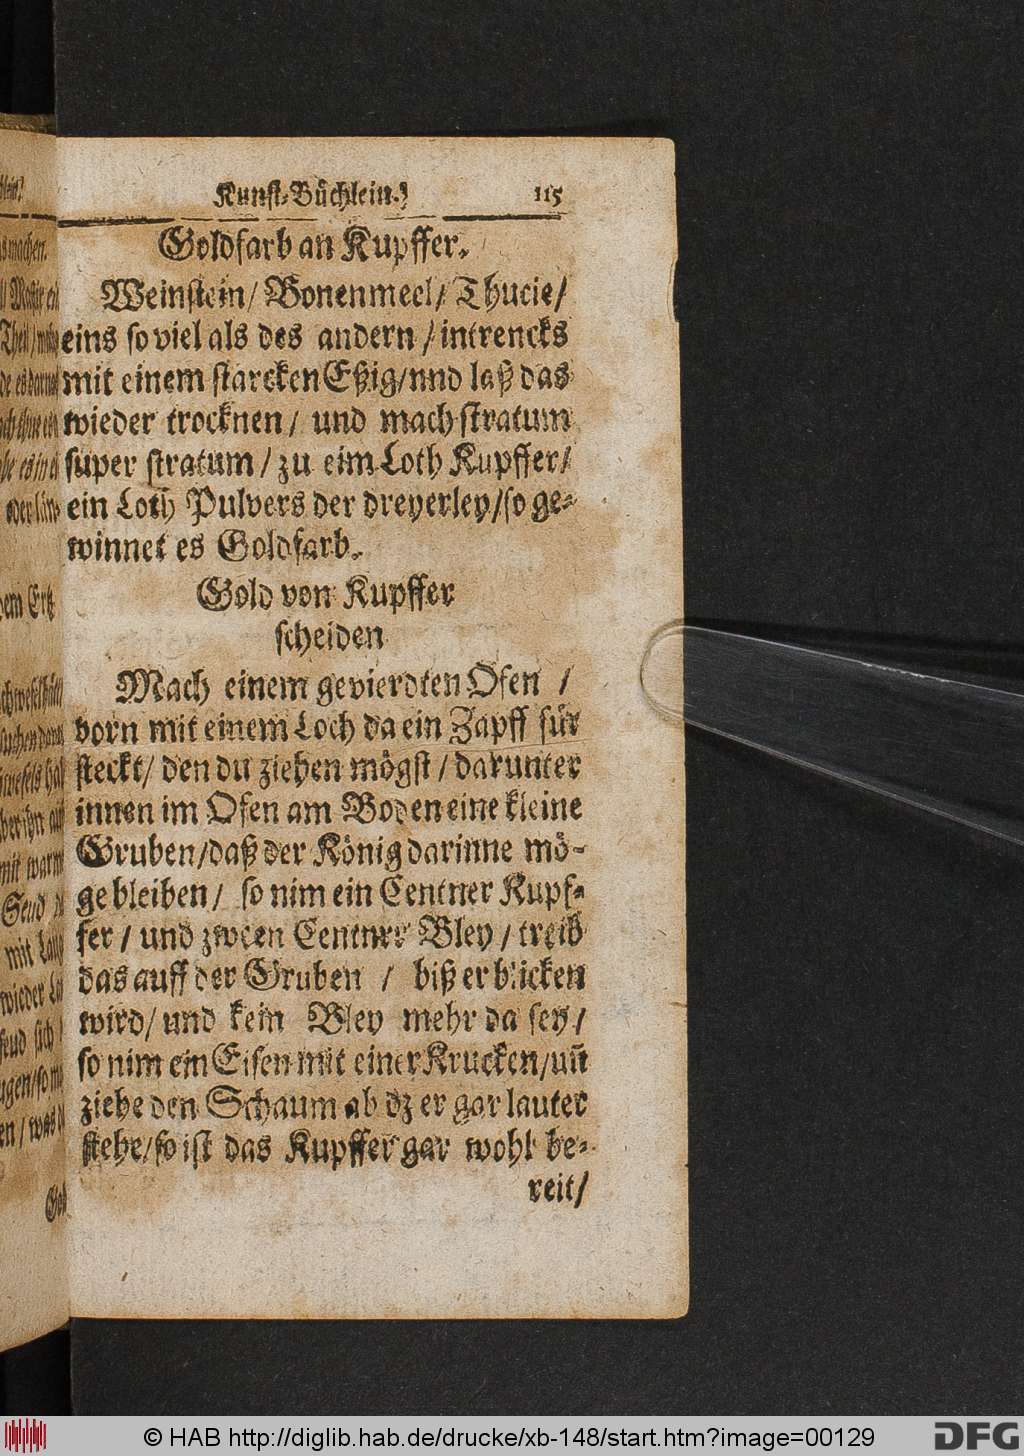 Kunst-Büchlein. 115
Goldfarb an Kupffer.
Weinstein/ Bonenmeel/ Thucie/
eins so viel als des andern / intrencks
mit einem starcken Eßig/nnd laß das
wieder trocknen / und mach stratum
super stratum / zu eim Loth Kupffer/
ein Loth Pulvers der dreyerley/so ge-
winnet es Goldfarb.
Gold von Kupffer
scheiden
Mach einem gevierdten Ofen /
vorn mit einem Loch da ein Zapff für
steckt/ den du ziehen mögst / darunter
innen im Ofen am Boden eine kleine
Gruben/daß der König darinne mö-
ge bleiben / so nim ein Centner Kupf-
fer / und zween Centner Bley / treib
das auff der Gruben / biß er blicken
wird/ und kein Bley mehr da sey/
so nim ein Eisen mit einer Krucken/uñ
ziehe den Schaum ab dz er gar lauter
stehe/so ist das Kupffer gar wohl be-
reit/
© HAB http://diglib.hab.de/drucke/xb-148/start.htm?image=00129
DFG